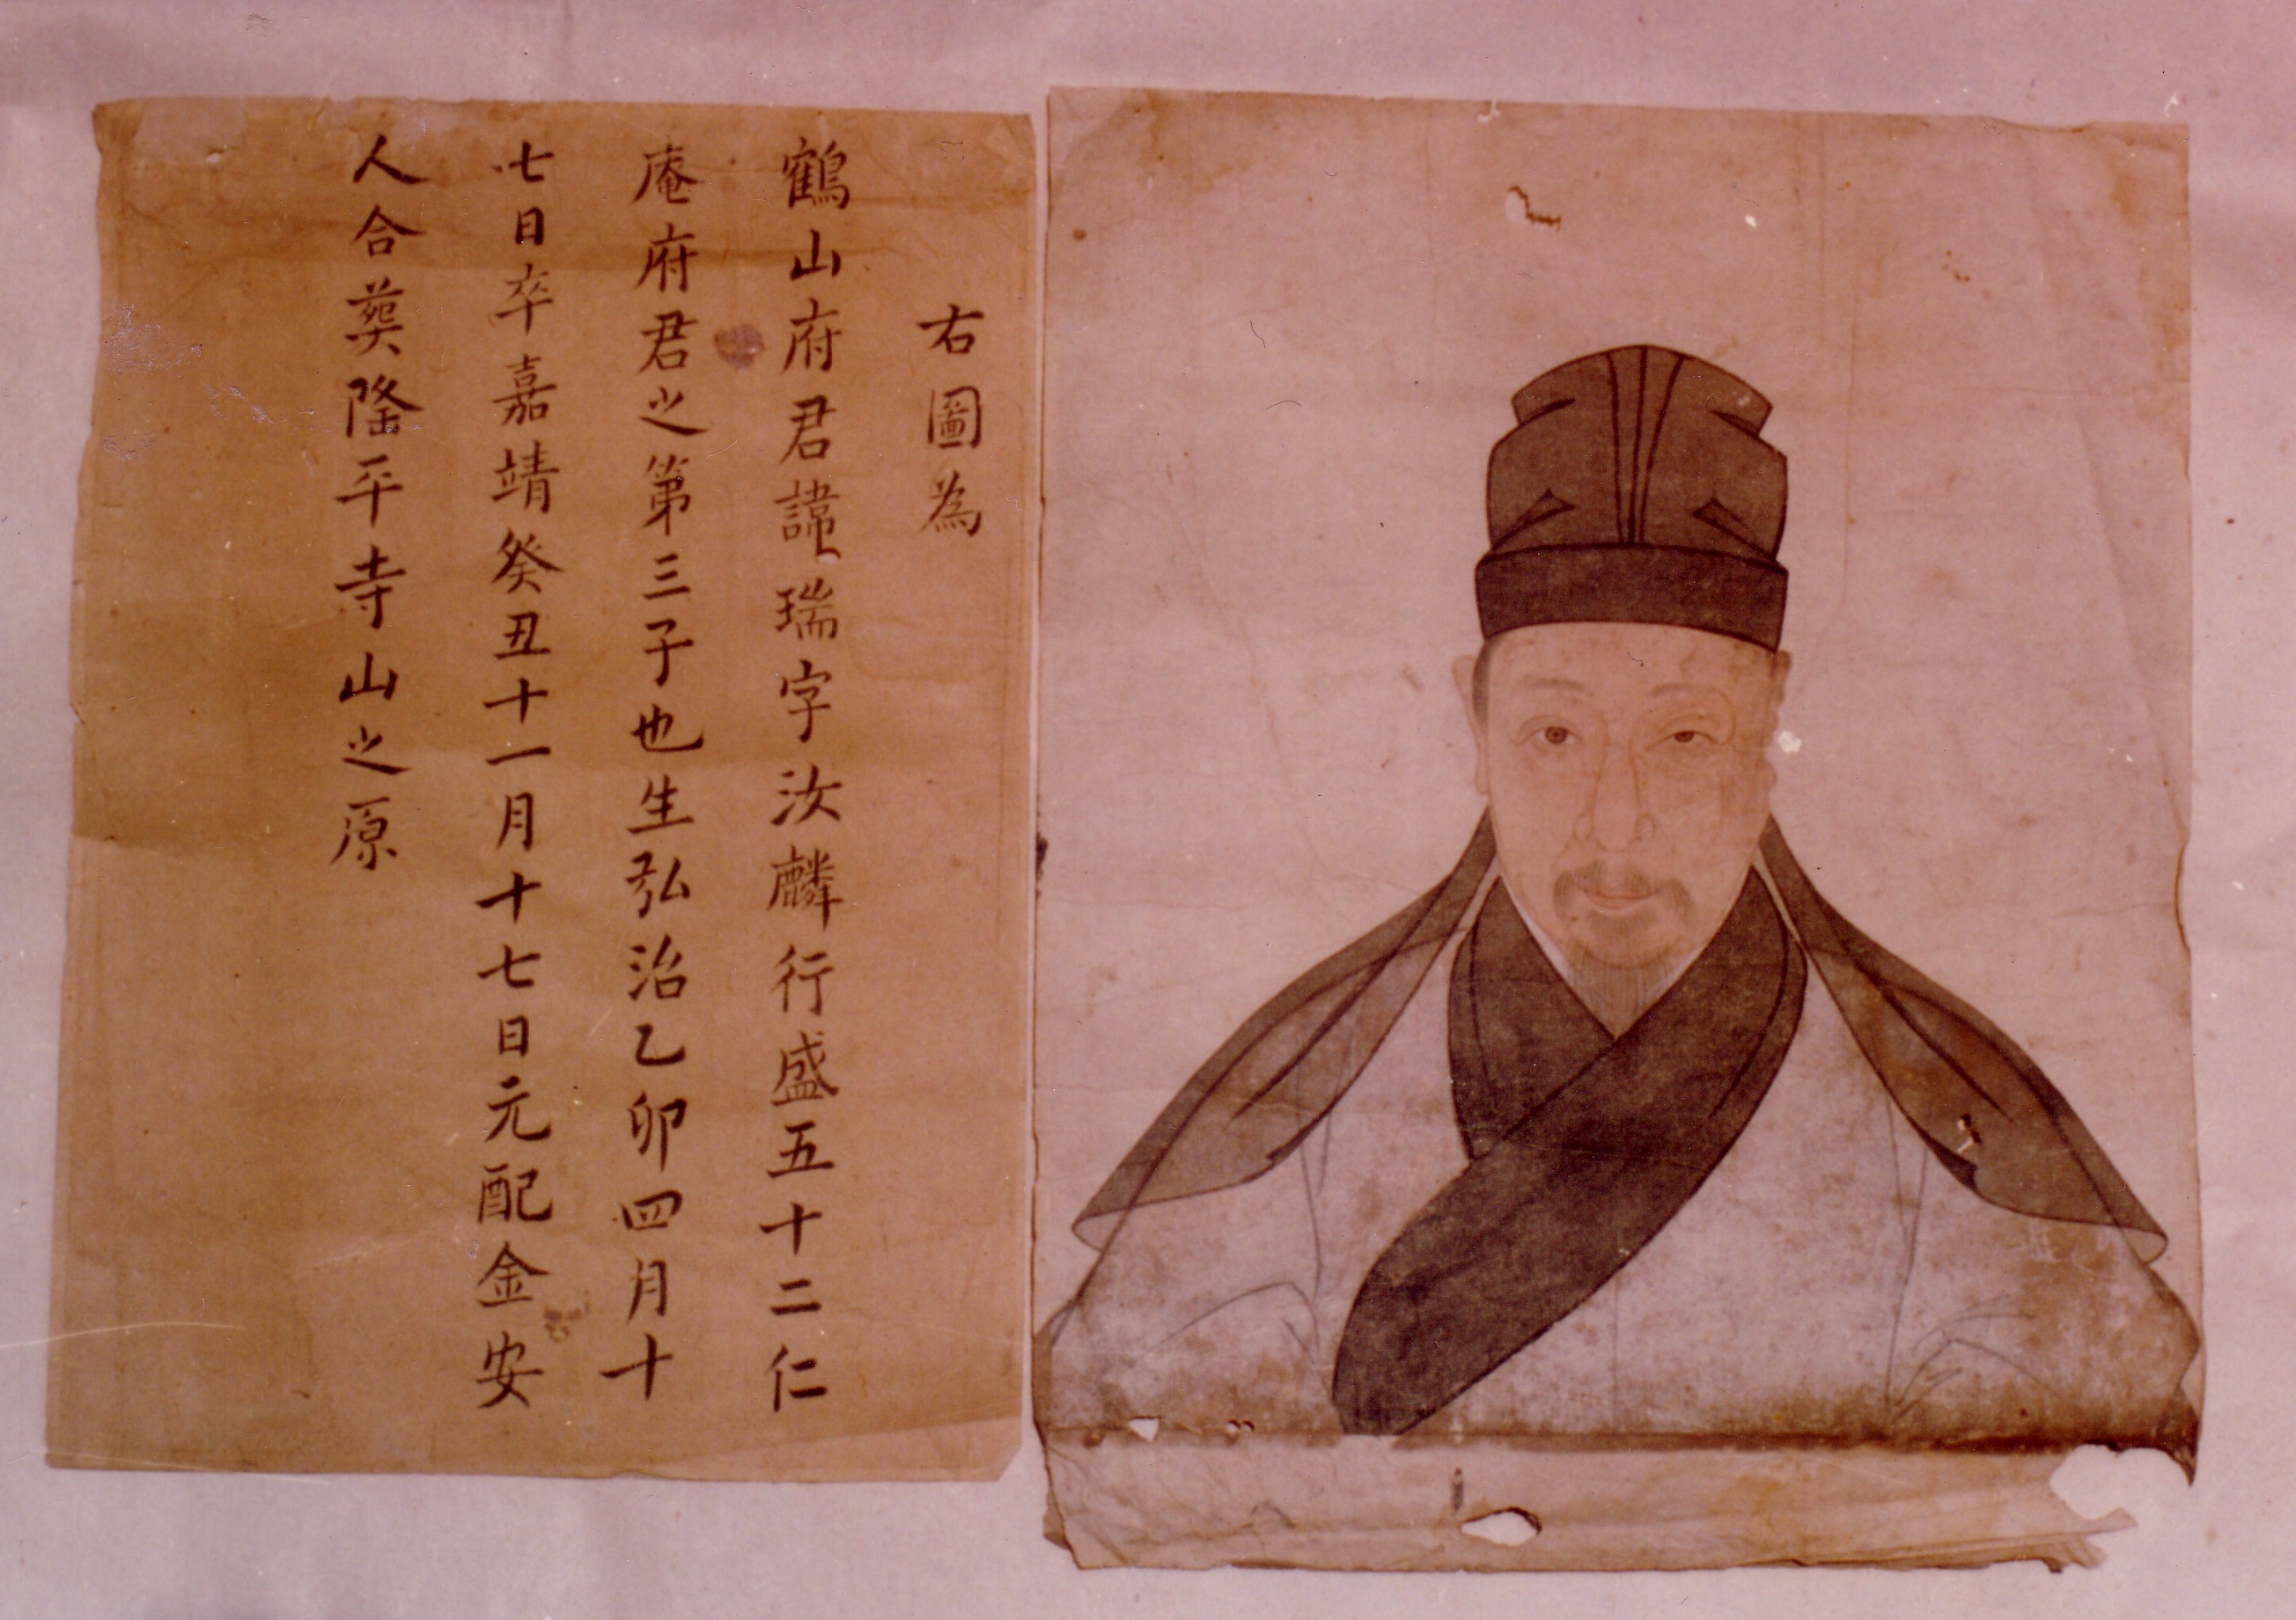 右圖為
鶴山府君諱瑞字汝麟行盛五十二仁
庵府君之第三子也生弘治乙卯四月十
七日卒嘉靖癸丑十一月十七日元配金安
人合葬隆平寺山之原